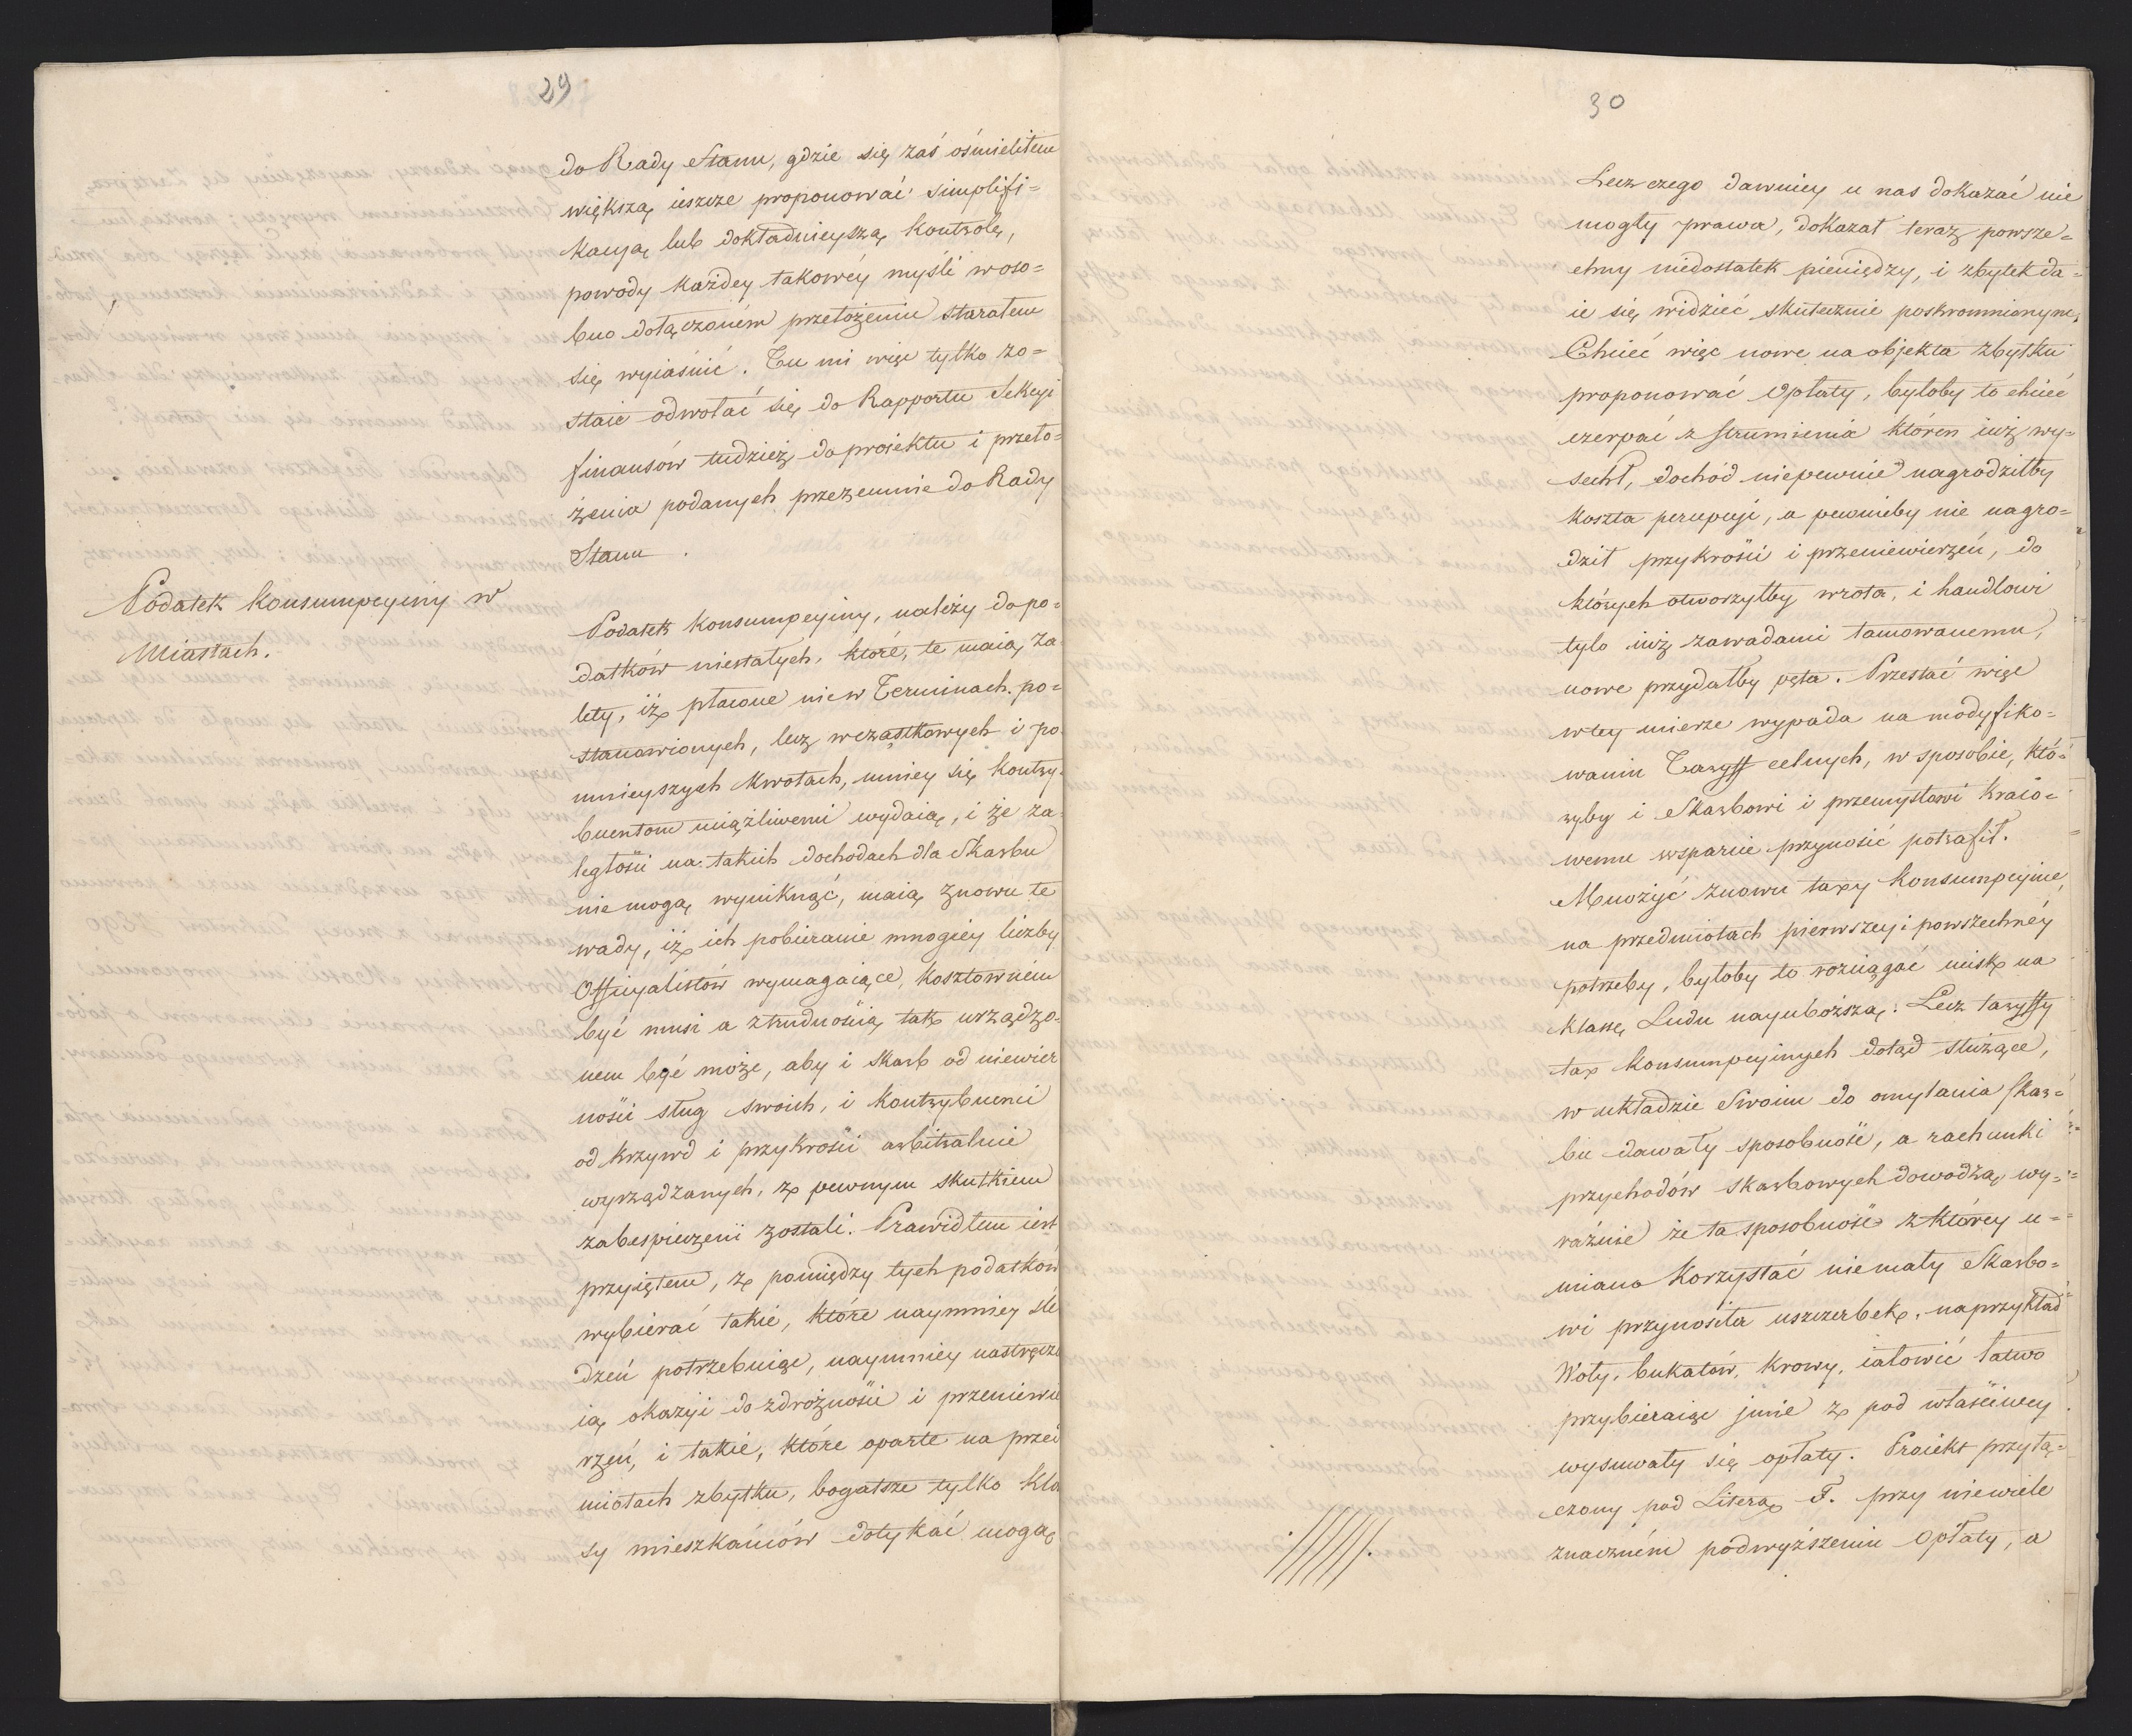 29
do Rady Stanu, gdzie się zaś ośmieliłem
większą ieszcze proponować simplifi=
kacyą lub dokładnieyszą kontrolę,
powody każdey takowéy myśli w oso=
bno dołączoném przełożeniu starałem
się wyiaśnić. Tu mi więc tylko zo=
staie odwołać się do Rapportu Sekcyi
finansów tudzież do proiektu i przeło=
żenia podanych przezemnie do Rady
Stanu.
Podatek konsumpcyiny w
Miastach.
Podatek konsumpcyiny, należy do po=
datków niestałych, które, te maią za
lety, iż płacone nie w Terminach po=
stanowionych, lecz w cząstkowych i po
mnieyszych kwotach, mniey się kontry=
buentom uciążliwemi wydaią, i że za=
ległości na takich dochodach dla Skarbu
nie mogą wyniknąć, maią znowu te
wady, iż ich pobieranie mnogiéy liczby
Officyalistów wymagaiące, kosztowném
być musi a z trudnością tak urządzo=
nem być może, aby i skarb od niewier
ności sług swoich, i kontrybuenci
od krzywd i przykrości arbitralnie
wyrządzanych, z pewnym skutkiem
zabespieczeni zostali. Prawidłem iest
przyiętem, z pomiędzy tych podatków
wybierać takie, które naymniey śle
dzeń potrzebuiąc, naymniey nastręcza
ią okazyi do zdrożności i przeniewie
rzeń, i takie, które oparte na przed
miotach zbytku, bogatsze tylko kla
sy mieszkańców dotykać mogą
30
Lecz czego dawniey u nas dokazać nie
mogły prawa, dokazał teraz powsze=
chny niedostatek pieniędzy, i zbytek da=
ie się widzieć skutecznie poskromnionym.
Chcieć więc nowe na objekta zbytku
proponować Opłaty, byłoby to chcieć
czerpać z strumienia któren iuż wy=
sechł, dochód niepewnie nagrodziłby
koszta percepcyi, a pewnieby nie nagro=
dził przykrości i przeniewierzeń, do
których otworzyłby wrota, i handlowi
tylo iuż zawadami tamowanemu,
nowe przydałby pęta. Przestać więc
w tey mierze wypada na modyfiko=
waniu Taryff celnych, w sposobie, któ=
ryby i Skarbowi i przemysłowi kraio=
wemu wsparcie przynosić potrafił.
Mnożyć znowu taxy konsumpcyine,
na przedmiotach pierwszey i powszechnéy
potrzeby, byłoby to rozciągać ucisk na
klassę Ludu nayuboższą. Lecz taryffy
tax konsumpcyinych dotąd służące,
w układzie Swoim do omylania skar=
bu dawały sposobność, a rachunki
przychodów skarbowych dowodzą wy=
raźnie że ta sposobność z którey u=
miano korzystać niemały Skarbo=
wi przynosiła uszczerbek. naprzykład
Woły, bukatów, krowy, iałowic łatwo
przybieraiąc jmie z pod właściwey
wysuwały się opłaty. Proiekt przyłą=
czony pod Literą F. przy niewiele
znaczném podwyższeniu Opłaty, a